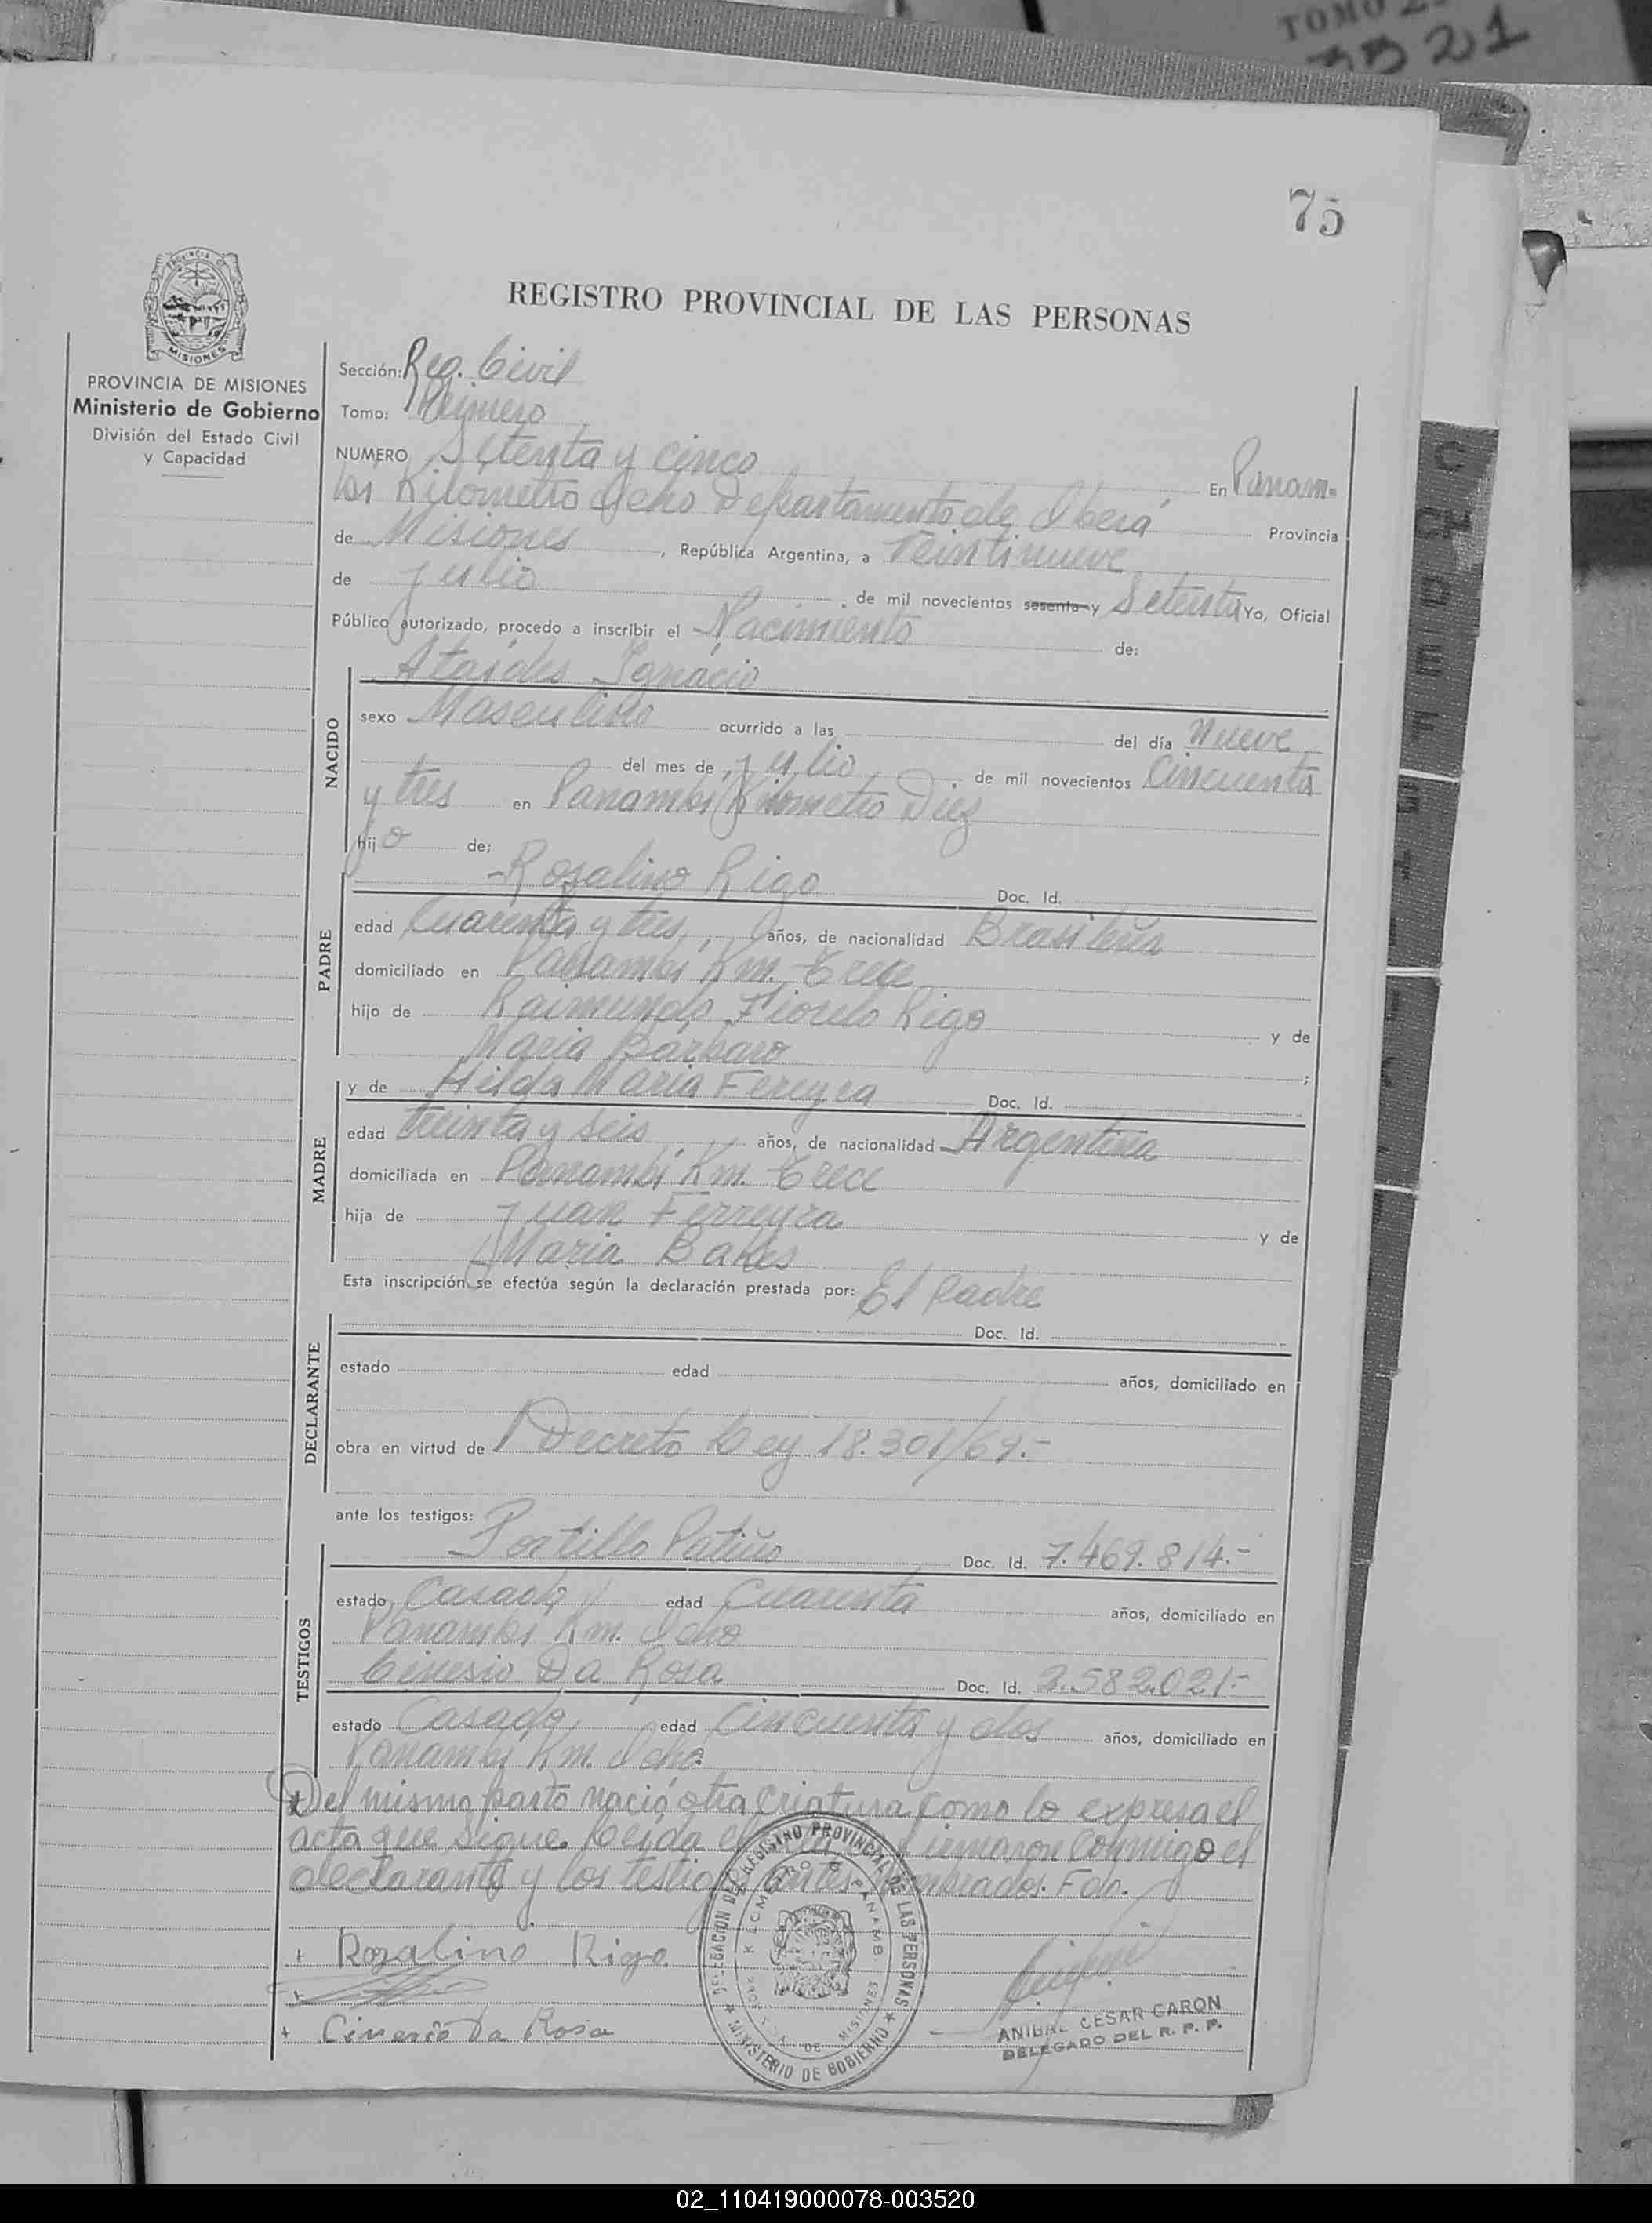 TOMO 2
3321
75
REGISTRO PROVINCIAL DE LAS PERSONAS
MISIONES
PROVINCIA DE MISIONES
Ministerio de Gobierno
División del Estado Civil
y Capacidad
Sección: Reg. Civil
Tomo: Primero
NUMERO Setenta y cinco En Panam-
bi Kilometro Ocho Departamento de Oberá Provincia
de Misiones, República Argentina, a Veintinueve
de Julio de mil novecientos sesenta y Setenta Yo, Oficial
Público autorizado, procedo a inscribir el Nacimiento de:
Ataídes Ignácio
NACIDO
sexo Masculino ocurrido a las del día Nueve
del mes de Julio de mil novecientos Cincuenta
y tres en Panambi Kilometro Diez
hijo de;
Rosalino Rigo Doc. Id.
PADRE
edad Cuarenta y tres años, de nacionalidad Brasileña
domiciliado en Panambi Km. Trece
hijo de Raimundo Fiorelo Rigo y de
Maria Barbaro ;
y de Hilda Maria Fereyra Doc. Id.
MADRE
edad treinta y seis años, de nacionalidad Argentina
domiciliada en Panambi Km. Trece
hija de Juan Ferreyra y de
Maria Bakes
Esta inscripción se efectúa según la declaración prestada por: El Padre
Doc. Id.
DECLARANTE
estado edad años, domiciliado en
obra en virtud de Decreto Ley 18.301/69.-
ante los testigos:
Portillo Patiño Doc. Id. 7.469.814.-
TESTIGOS
estado Casado edad Cuarenta años, domiciliado en
Panambi Km. Ocho
Cinesio Da Rosa Doc. Id. 2.582.021.-
estado Casado edad Cincuenta y dos años, domiciliado en
Panambi Km. Ocho.
Del mismo parto nació otra criatura como lo expresa el
acta que sigue. Leída el firmaron conmigo el
declarante y los testigos antes nombrados. Fdo.
+ Rozalino Rigo.
+
+ Cinesio Da Rosa
DELEGACION DEL REGISTRO PROVINCIAL DE LAS PERSONAS
MINISTERIO DE GOBIERNO
ANIBAL CESAR CARON
DELEGADO DEL R. P. P.
C
CH
D
E
F
02_110419000078-003520